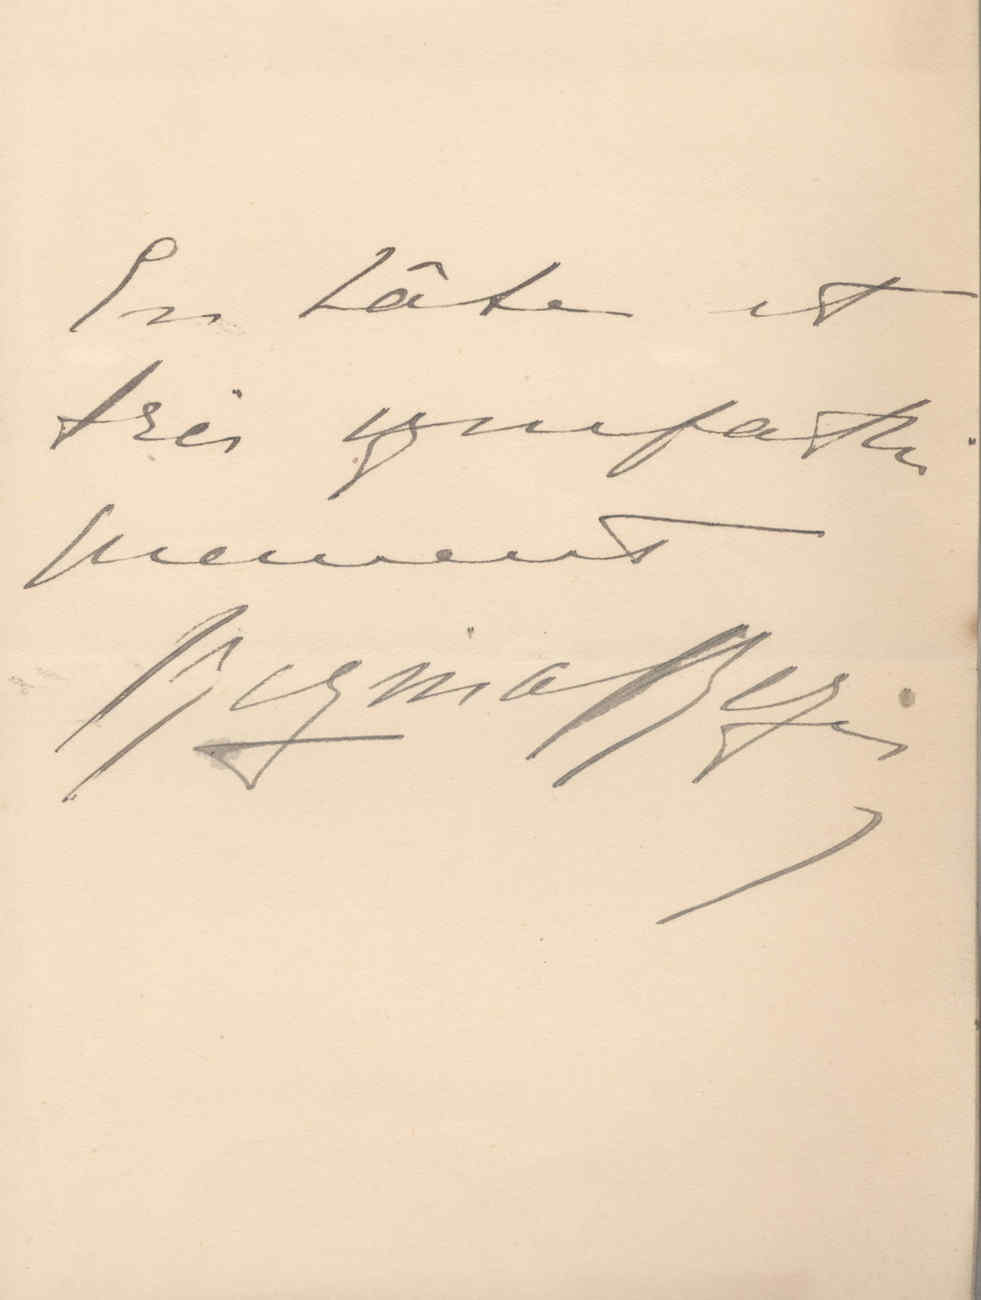 En hâte et
très sympathi
quement
Regina Regis